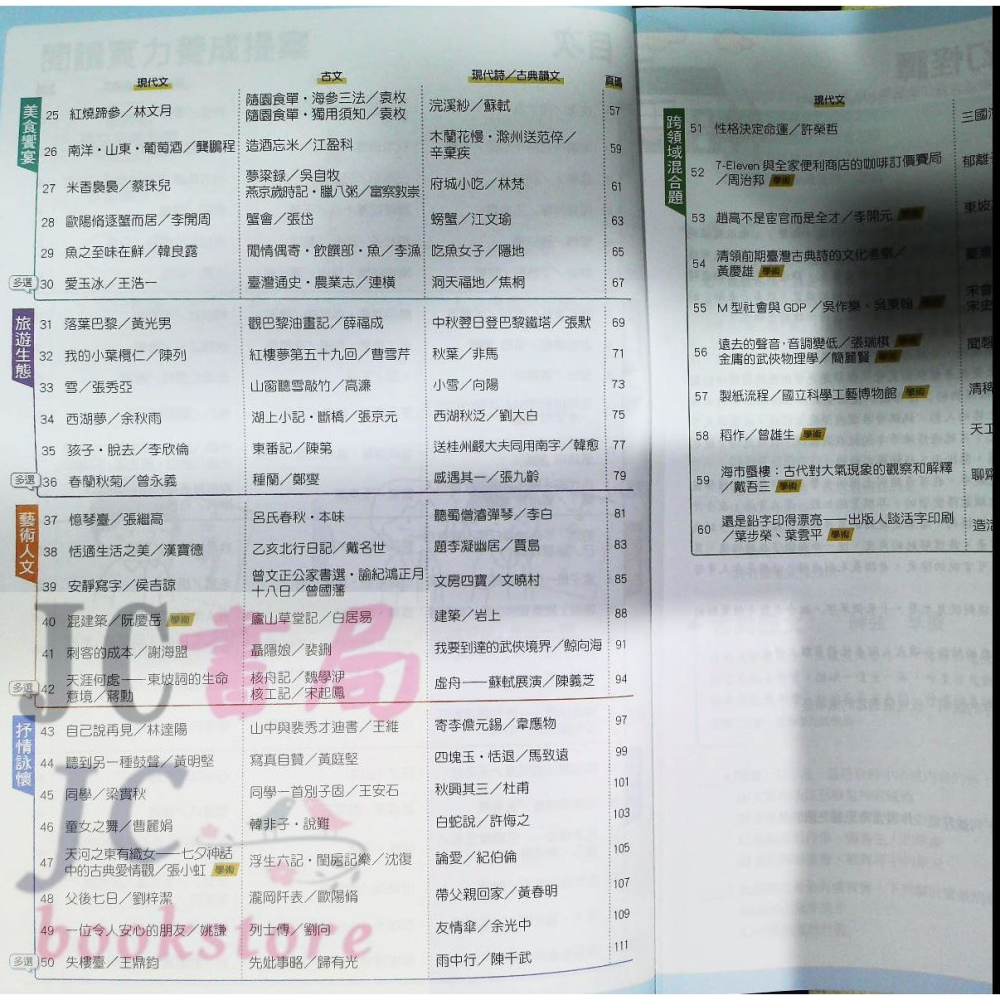 目次
現代文
古文
現代詩／古典韻文
頁碼
美食饗宴
25 紅燒蹄參／林文月
隨園食單・海參三法／袁枚
隨園食單・獨用須知／袁枚
浣溪紗／蘇軾
57
26 南洋・山東・葡萄酒／龔鵬程
造酒忘米／江盈科
木蘭花慢・滁州送范倅／
辛棄疾
59
27 米香裊裊／蔡珠兒
夢粱錄／吳自牧
燕京歲時記・臘八粥／富察敦崇
府城小吃／林梵
61
28 歐陽脩逐蟹而居／李開周
蟹會／張岱
螃蟹／江文瑜
63
29 魚之至味在鮮／韓良露
閒情偶寄・飲饌部・魚／李漁
吃魚女子／隱地
65
多選
30 愛玉冰／王浩一
臺灣通史・農業志／連橫
洞天福地／焦桐
67
旅遊生態
31 落葉巴黎／黃光男
觀巴黎油畫記／薛福成
中秋翌日登巴黎鐵塔／張默
69
32 我的小葉欖仁／陳列
紅樓夢第五十九回／曹雪芹
秋葉／非馬
71
33 雪／張秀亞
山窗聽雪敲竹／高濂
小雪／向陽
73
34 西湖夢／余秋雨
湖上小記・斷橋／張京元
西湖秋泛／劉大白
75
35 孩子・脫去／李欣倫
東番記／陳第
送桂州嚴大夫同用南字／韓愈
77
多選
36 春蘭秋菊／曾永義
種蘭／鄭燮
感遇其一／張九齡
79
藝術人文
37 憶琴臺／張繼高
呂氏春秋・本味
聽蜀僧濬彈琴／李白
81
38 恬適生活之美／漢寶德
乙亥北行日記／戴名世
題李凝幽居／賈島
83
39 安靜寫字／侯吉諒
曾文正公家書選・諭紀鴻正月
十八日／曾國藩
文房四寶／文曉村
85
40 混建築／阮慶岳 學術
廬山草堂記／白居易
建築／岩上
88
41 刺客的成本／謝海盟
聶隱娘／裴鉶
我要到達的武俠境界／鯨向海
91
多選
42 天涯何處——東坡詞的生命
意境／蔣勳
核舟記／魏學洢
核工記／宋起鳳
虛舟——蘇軾展演／陳義芝
94
抒情詠懷
43 自己說再見／林達陽
山中與裴秀才迪書／王維
寄李儋元錫／韋應物
97
44 聽到另一種鼓聲／黃明堅
寫真自贊／黃庭堅
四塊玉・恬退／馬致遠
99
45 同學／梁實秋
同學一首別子固／王安石
秋興其三／杜甫
101
46 童女之舞／曹麗娟
韓非子・說難
白蛇說／許悔之
103
47 天河之東有織女——七夕神話
中的古典愛情觀／張小虹 學術
浮生六記・閨房記樂／沈復
論愛／紀伯倫
105
48 父後七日／劉梓潔
瀧岡阡表／歐陽脩
帶父親回家／黃春明
107
49 一位令人安心的朋友／姚謙
列士傳／劉向
友情傘／余光中
109
多選
50 失樓臺／王鼎鈞
先妣事略／歸有光
雨中行／陳千武
111
跨領域混合題
現代文
51 性格決定命運／許榮哲
三國
52 7-Eleven 與全家便利商店的咖啡訂價賽局
／周治邦 學術
郁離
53 趙高不是宦官而是全才／李開元 學術
東坡
54 清領前期臺灣古典詩的文化考察／
黃慶雄 學術
55 M型社會與GDP／吳作樂、吳秉翰
宋史
56 遠去的聲音・音調變低／張瑞棋
金庸的武俠物理學／簡麗賢 學術
57 製紙流程／國立科學工藝博物館 學術
清稗
58 稻作／曾雄生 學術
天工
59 海市蜃樓：古代對大氣現象的觀察和解釋
／戴吾三 學術
聊齋
60 還是鉛字印得漂亮——出版人談活字印刷
／葉步榮、葉雲平 學術
造活
JC書局
JC
bookstore